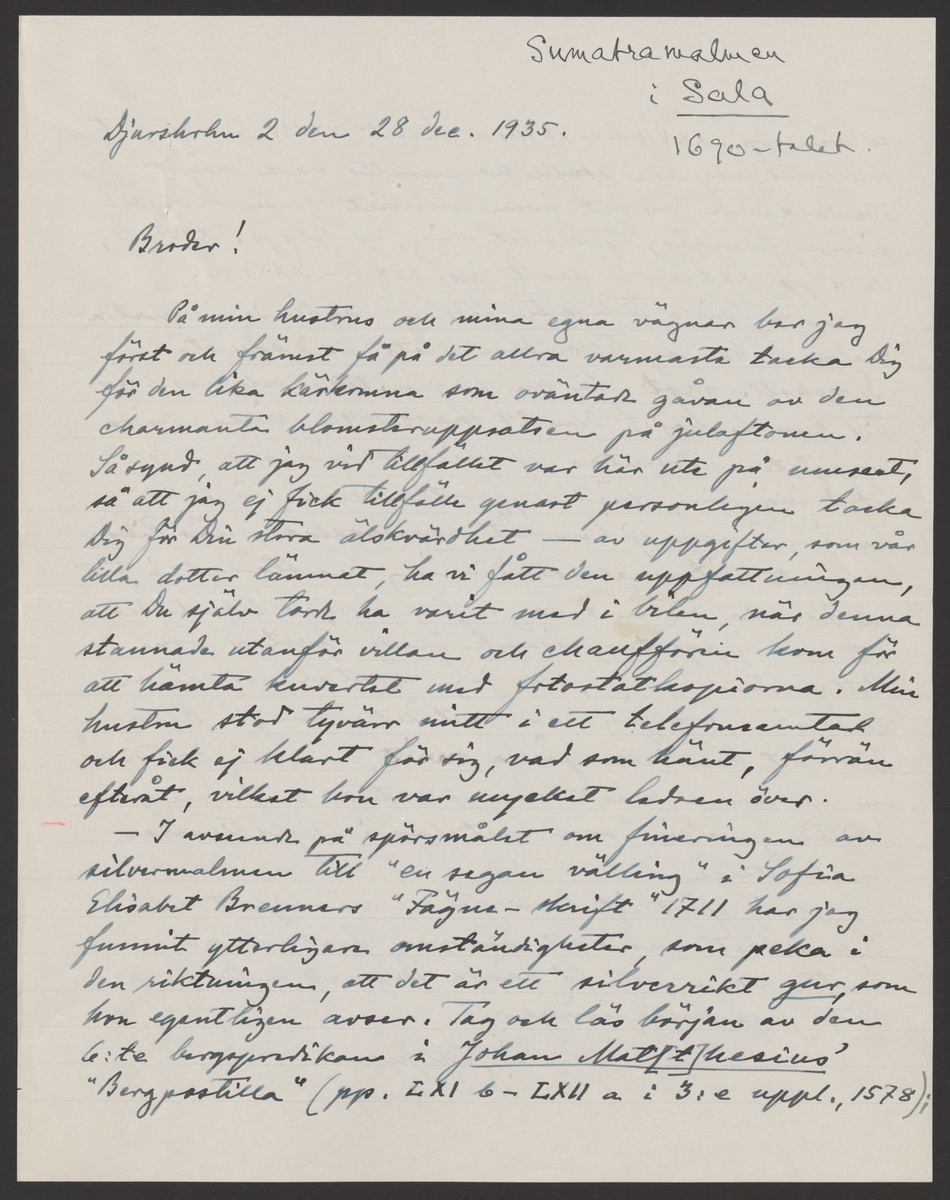 Sumatramalmen
i Sala
1690-talet.
Djursholm 2 den 28 dec. 1935.
Broder!
På min hustrus och mina egna vägnar ber jag
först och främst få på det allra varmaste tacka Dig
för den lika kärkomna som oväntade gåvan av den
charmanta blomsteruppsatsen på julaftonen.
Så synd, att jag vid tillfället var här ute på museet,
så att jag ej fick tillfälle genast personligen tacka
Dig för Din stora älskvärdhet — av uppgifter, som vår
lilla dotter lämnat, ha vi fått den uppfattningen,
att Du själv torde ha varit med i bilen, när denna
stannade utanför villan och chauffören kom för
att hämta kuvertet med fotostatkopiorna. Min
hustru stod tyvärr mitt i ett telefonsamtal
och fick ej klart för sig, vad som hänt, förrän
efteråt, vilket hon var mycket ledsen över.
— I avseende på spörsmålet om fineringen av
silvermalmen till "en segan välling" i Sofia
Elisabet Brenners "Fägne-skrift" 1711 har jag
funnit ytterligare omständigheter, som peka i
den riktningen, att det är ett silverrikt gur, som
hon egentligen avser. Tag och läs början av den
6:te bergspredikan i Johan Mat[t]hesius'
"Bergpostilla" (pp. LXI b - LXII a i 3:e uppl., 1578);